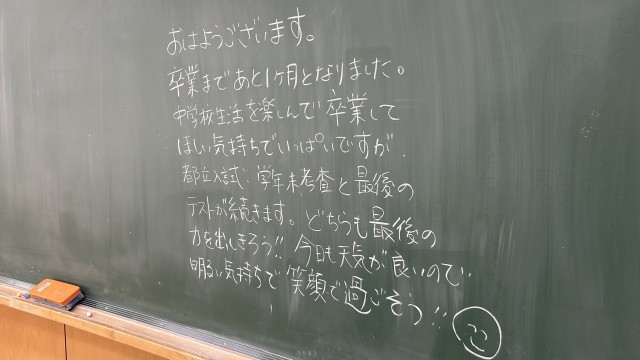 おはようございます。
卒業まであと1ヶ月となりました。
中学校生活を楽しんで卒業して
ほしい気持ちでいっぱいですが、
都立入試、学年末考査と最後の
テストが続きます。どちらも最後の
力を出しきろう!! 今日も天気が良いので、
明るい気持ちで笑顔で過ごそう!!